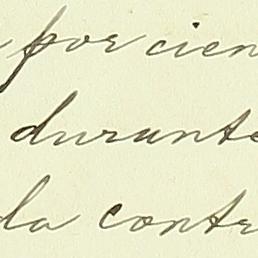 por cien
durante
da contr